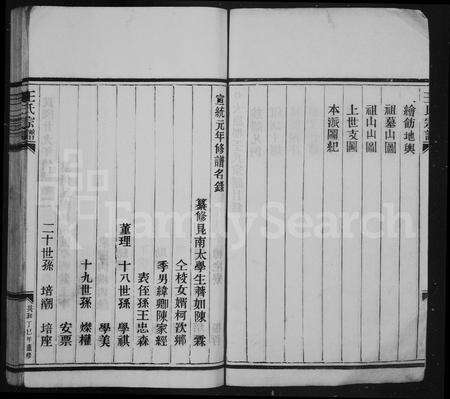 一繪飭地輿
祖墓山圖
祖山山圖
上世支圖
本派圖紀
王氏宗譜
宣統元年修譜名錄
纂修 昆南太學生蕃如陳霖
仝校女婿柯次鄉
季男緯卿陳家經
表侄孫王忠森
董理 十八世孫 學祺
學美
十九世孫 燦權
安票
二十世孫 培潮 培座
王氏宗譜
FamilySearch